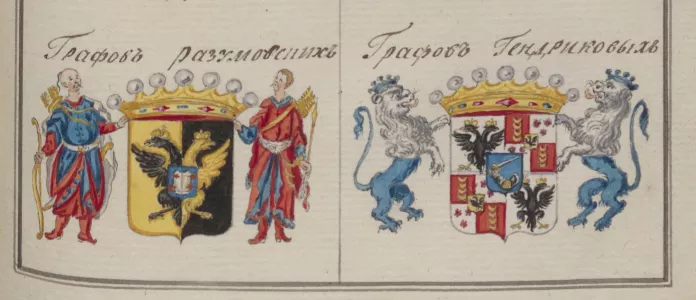 Графовъ Разумовскихъ
Графовъ Гендриковыхъ